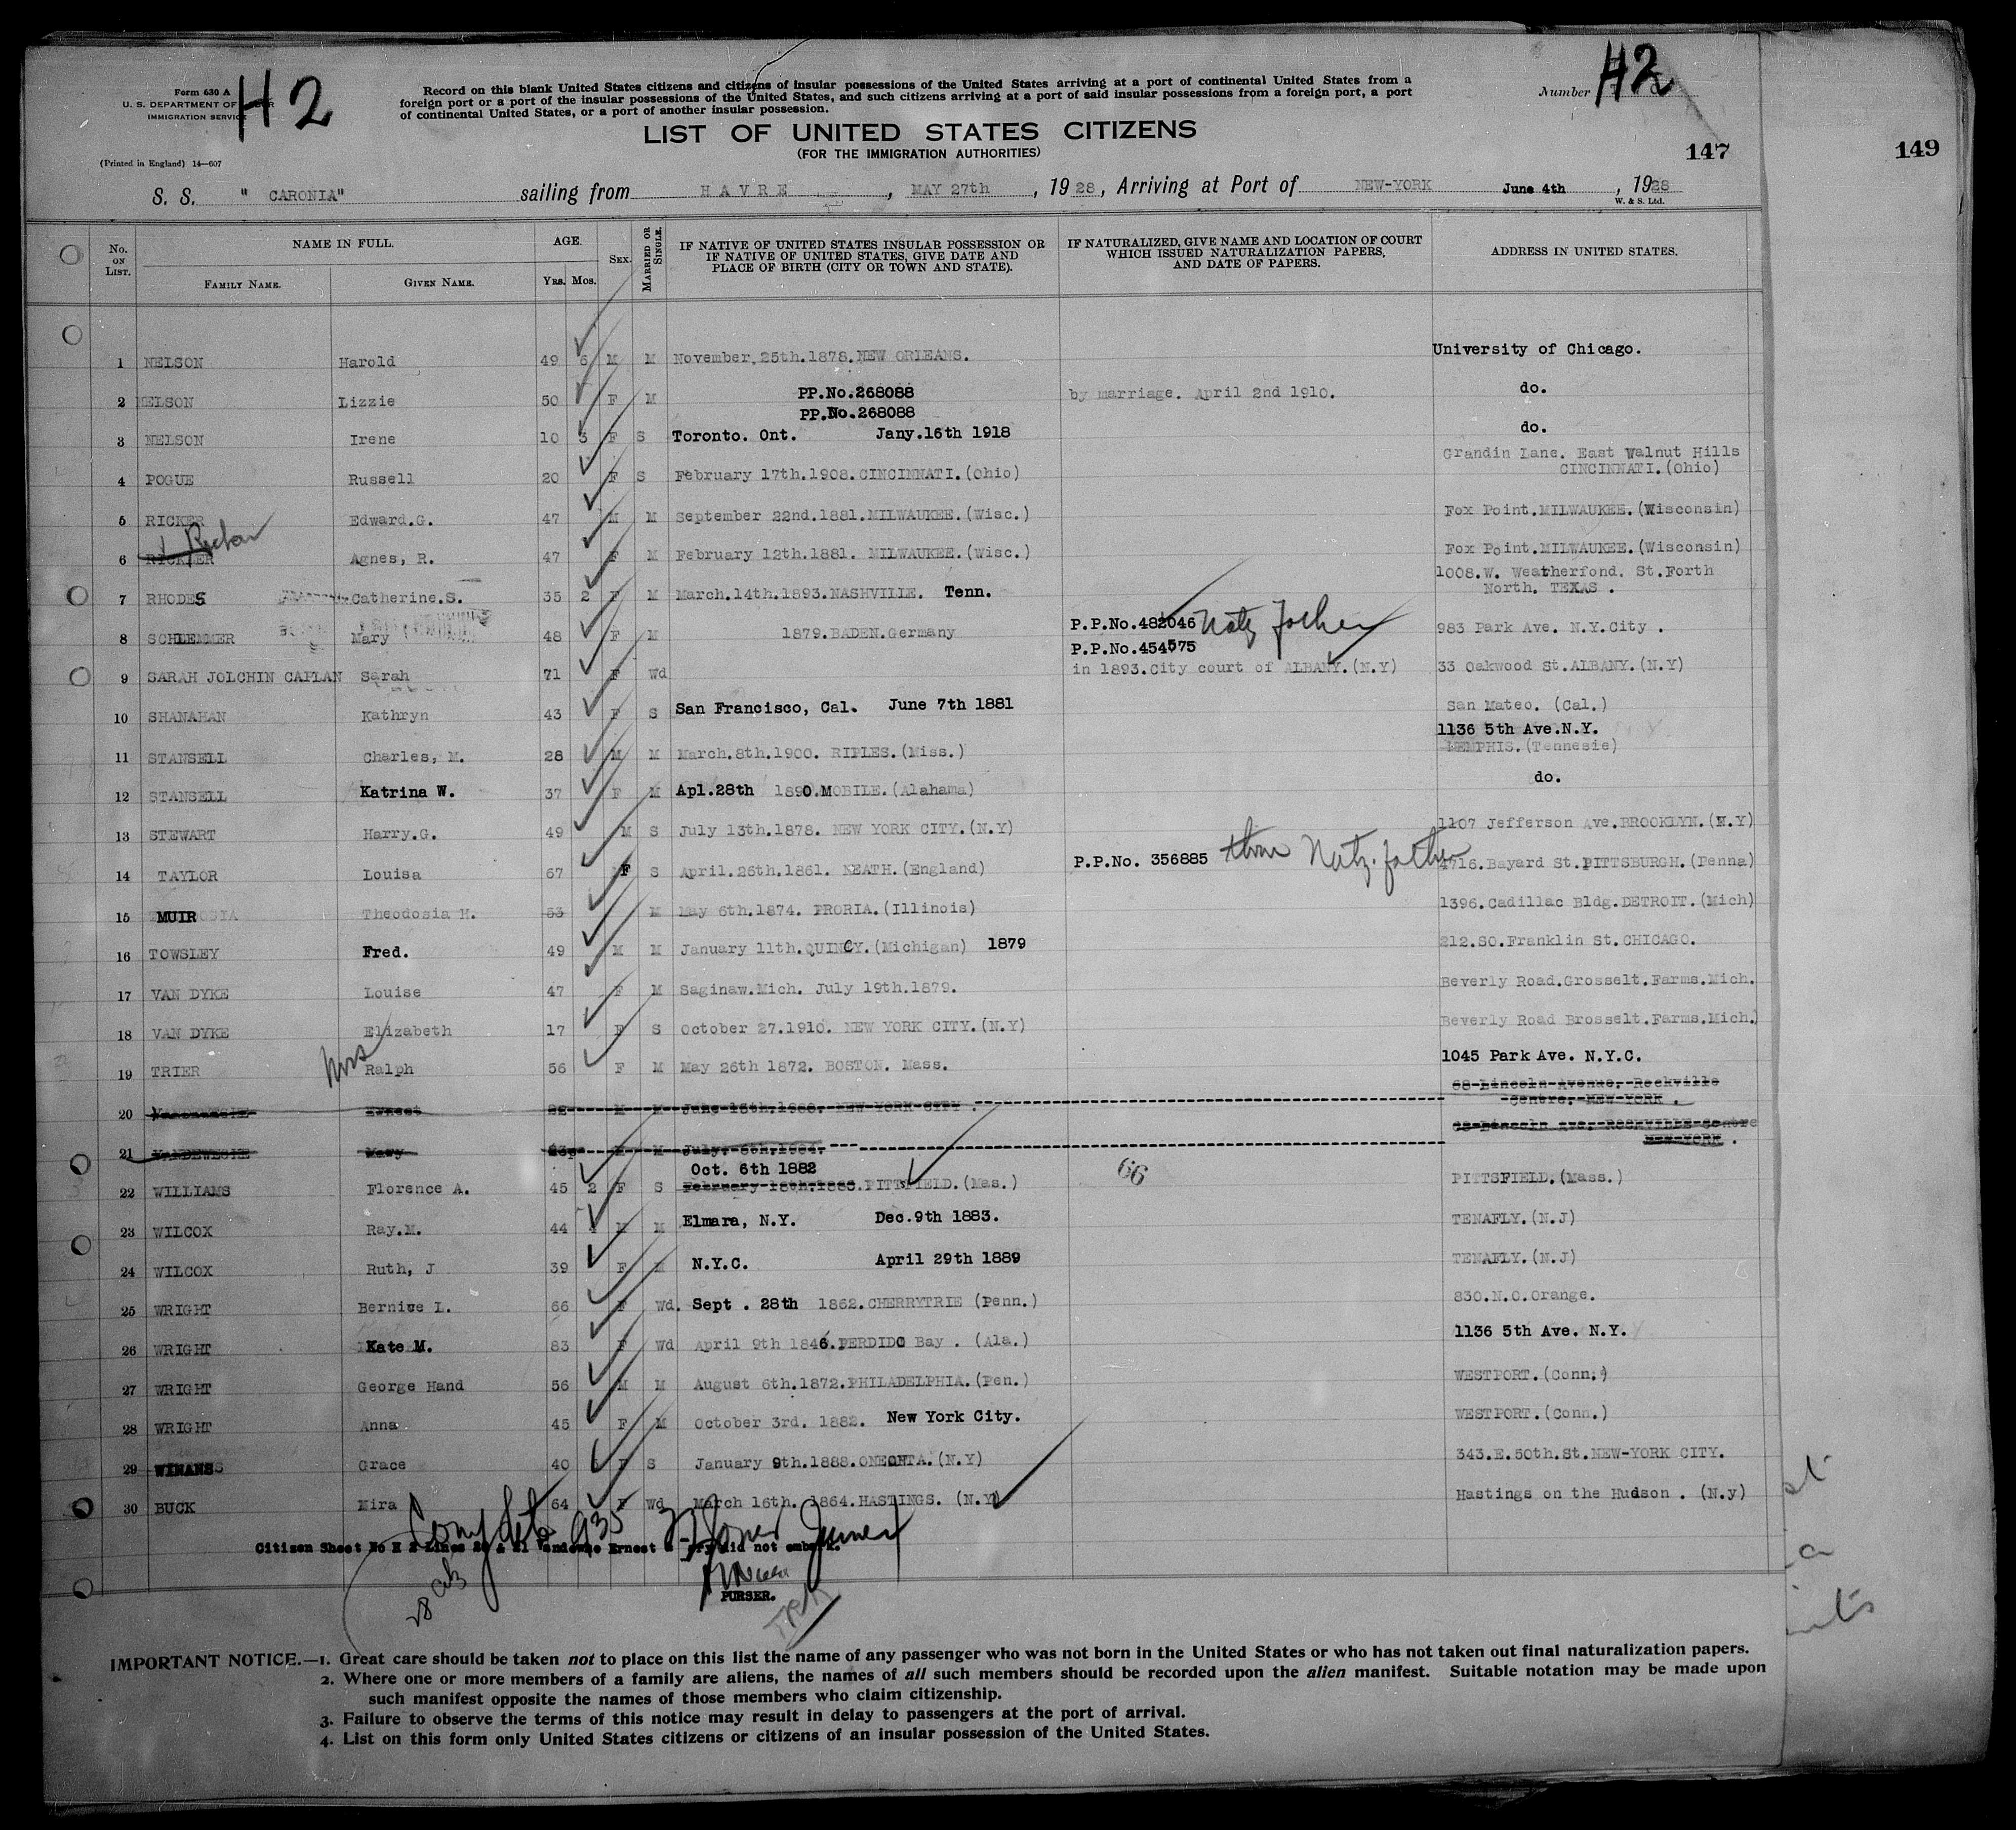 H2
H2
Form 630 A
U. S. DEPARTMENT OF
IMMIGRATION SERVICE
(Printed in England) 14—607
Record on this blank United States citizens and citizens of insular possessions of the United States arriving at a port of continental United States from a
foreign port or a port of the insular possessions of the United States, and such citizens arriving at a port of said insular possessions from a foreign port, a port
of continental United States, or a port of another insular possession.
Number
LIST OF UNITED STATES CITIZENS
(FOR THE IMMIGRATION AUTHORITIES)
147
149
S. S. " CARONIA" sailing from HAVRE , MAY 27th , 1928, Arriving at Port of NEW-YORK June 4th , 1928
W. & S. Ltd.
No. ON LIST. NAME IN FULL. FAMILY NAME. GIVEN NAME. AGE. YRS. MOS. SEX. MARRIED OR SINGLE. IF NATIVE OF UNITED STATES INSULAR POSSESSION OR IF NATIVE OF UNITED STATES, GIVE DATE AND PLACE OF BIRTH (CITY OR TOWN AND STATE). IF NATURALIZED, GIVE NAME AND LOCATION OF COURT WHICH ISSUED NATURALIZATION PAPERS, AND DATE OF PAPERS. ADDRESS IN UNITED STATES.
1 NELSON Harold 49 6 M M November.25th.1878.NEW ORLEANS. University of Chicago.
2 NELSON Lizzie 50 F M PP.No.268088 by marriage. April 2nd 1910. do.
PP.No.268088
3 NELSON Irene 10 3 F S Toronto. Ont. Jany.16th 1918 do.
4 POGUE Russell 20 F S February 17th.1908.CINCINNATI.(Ohio) Grandin Lane. East Walnut Hills
CINCINNATI.(Ohio)
5 RICKER Edward.G. 47 M M September 22nd.1881.MILWAUKEE.(Wisc.) Fox Point.MILWAUKEE.(Wisconsin)
6 RICKER Agnes, R. 47 F M February 12th.1881. MILWAUKEE.(Wisc.) Fox Point.MILWAUKEE.(Wisconsin)
7 RHODES Catherine.S. 35 2 F M March.14th.1893.NASHVILLE. Tenn. 1008.W. Weatherfond. St.Forth
North. TEXAS .
8 SCHLEMMER Mary 48 F M 1879.BADEN.Germany P.P.No.482046 Natz father 983 Park Ave. N.Y.City .
P.P.No.454575
9 SARAH JOLCHIN CAPLAN Sarah 71 F Wd in 1893.City court of ALBANY.(N.Y) 33 Oakwood St.ALBANY.(N.Y)
10 SHANAHAN Kathryn 43 F S San Francisco, Cal. June 7th 1881 San Mateo. (Cal.)
1136 5th Ave.N.Y.
11 STANSELL Charles, M. 28 M M March.8th.1900. RIPLES.(Miss.) MEMPHIS.(Tennesie)
12 STANSELL Katrina W. 37 F M Apl.28th 1890.MOBILE.(Alahama) do.
13 STEWART Harry.G. 49 M S July 13th.1878. NEW YORK CITY.(N.Y) 1107 Jefferson Ave.BROOKLYN.(N.Y)
14 TAYLOR Louisa 67 F S April.26th.1861. NEATH.(England) P.P.No. 356885 Natz. father 4716.Bayard St.PITTSBURGH.(Penna)
15 MUIR Theodosia H. 53 M May 6th.1874. PRORIA.(Illinois) 1396.Cadillac Bldg.DETROIT.(Mich)
16 TOWSLEY Fred. 49 M M January 11th.QUINCY.(Michigan) 1879 212.SO.Franklin St.CHICAGO.
17 VAN DYKE Louise 47 F M Saginaw.Mich. July 19th.1879. Beverly Road.Grosselt.Farms.Mich.
18 VAN DYKE Elizabeth 17 F S October 27.1910. NEW YORK CITY.(N.Y) Beverly Road Brosselt.Farms.Mich.)
19 TRIER Mrs Ralph 56 F M May 26th 1872. BOSTON. Mass. 1045 Park Ave. N.Y.C.
68-Lincoln-Avenue,-Rockville
20 Ernest M M June 18th.1888. NEW YORK CITY . Centre, NEW-YORK .
ROCKVILLE Centre
21 VANDEWEGHE Mary F M July. 6th.1884. NEW-YORK .
Oct. 6th 1882
22 WILLIAMS Florence A. 45 2 F S February 18th.1883.PITTSFIELD.(Mas.) 66 PITTSFIELD.(Mass.)
23 WILCOX Ray.M. 44 M M Elmara, N.Y. Dec.9th 1883. TENAFLY.(N.J)
24 WILCOX Ruth, J 39 F M N.Y.C. April 29th 1889 TENAFLY.(N.J)
25 WRIGHT Bernive L. 66 F Wd. Sept . 28th 1862.CHERRYTRIE (Penn.) 830.N.O.Orange.
26 WRIGHT Kate M. 83 F Wd April 9th 1846.PERDIDO Bay . (Ala.) 1136 5th Ave. N.Y.
27 WRIGHT George Hand 56 M M August 6th.1872.PHILADELPHIA.(Pen.) WESTPORT.(Conn.)
28 WRIGHT Anna 45 F M October 3rd. 1882. New York City. WESTPORT.(Conn.)
29 WINANS Grace 40 F S January 9th.1888.ONEONTA.(N.Y) 343.E.50th.St.NEW-YORK CITY.
30 BUCK Mira 64 F Wd March 16th. 1864.HASTINGS. (N.Y) Hastings on the Hudson . (N.y)
Complete 935
Citizen Sheet No H 2 Lines 20 & 21 Ernest & did not embark.
PURSER.
IMPORTANT NOTICE.—1. Great care should be taken not to place on this list the name of any passenger who was not born in the United States or who has not taken out final naturalization papers.
2. Where one or more members of a family are aliens, the names of all such members should be recorded upon the alien manifest. Suitable notation may be made upon
such manifest opposite the names of those members who claim citizenship.
3. Failure to observe the terms of this notice may result in delay to passengers at the port of arrival.
4. List on this form only United States citizens or citizens of an insular possession of the United States.